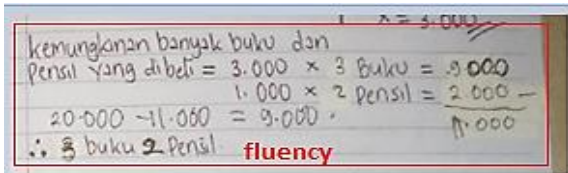 x = 3.000
kemungkinan banyak buku dan
Pensil yang dibeli = 3.000 × 3 Buku = 9000
1.000 × 2 Pensil = 2000 -
20.000 - 11.000 = 9.000. 11.000
∴ 3 buku 2 Pensil
fluency